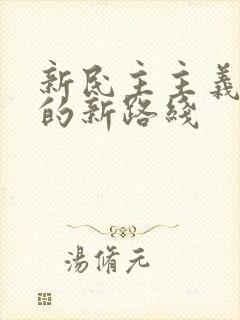 新民主主義
的新路綫
湯脩元